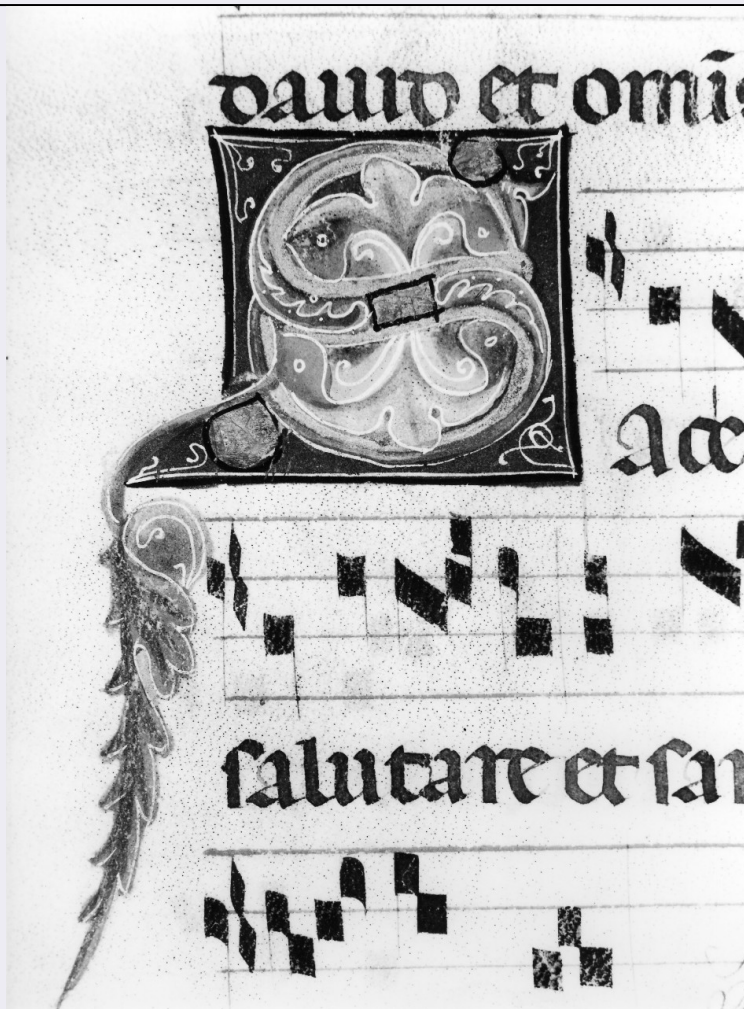 dauid et omīs
SAce
salutare et san